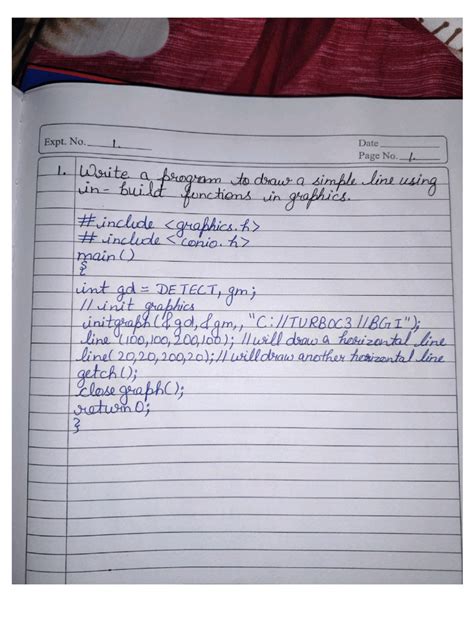 Expt. No. 1.
Date
Page No. 1.
1. Write a program to draw a simple line using
in-build functions in graphics.
#include <graphics.h>
#include <conio.h>
main()
{
int gd = DETECT, gm;
// init graphics
initgraph(&gd, &gm,, "C://TURBOC3//BGI");
line (100,100,200,100); //will draw a horizontal line
line(20,20,200,20); // will draw another horizontal line
getch();
closegraph();
return 0;
}